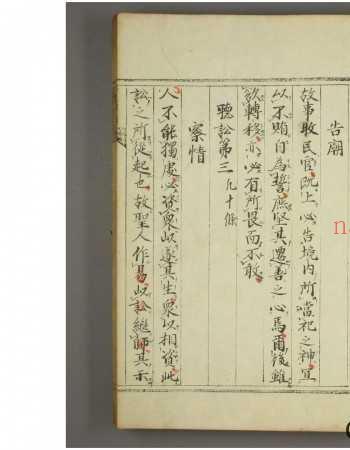 告廟
故事牧民官既上必告境内所當祀之神宜
以不賄自為誓庶堅其遷善之心焉爾後雖
欲轉移亦必有所畏而不敢
聽訟第三 凡十條
察情
人不能獨處必資衆以遂其生衆以相資此
訟之所從起也故聖人作易以訟繼師其示